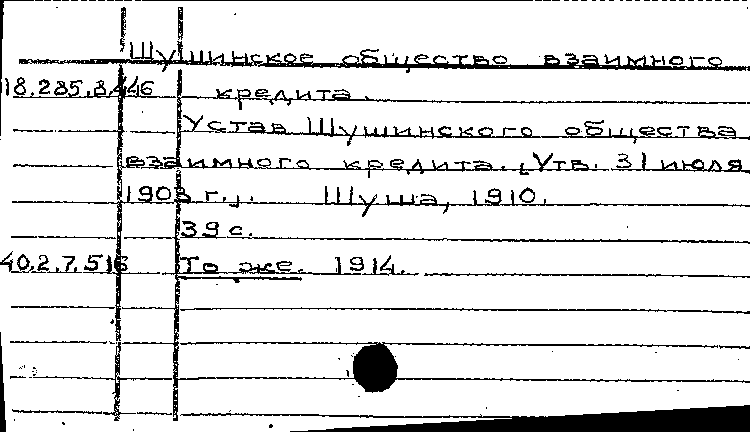 Шушинское общество взаимного
18.285.8.446 кредита.
Устав Шушинского общества
взаимного кредита. [Утв. 31 июля
1903 г.]. Шуша, 1910.
39 с.
40.2.7.516 То же. 1914.